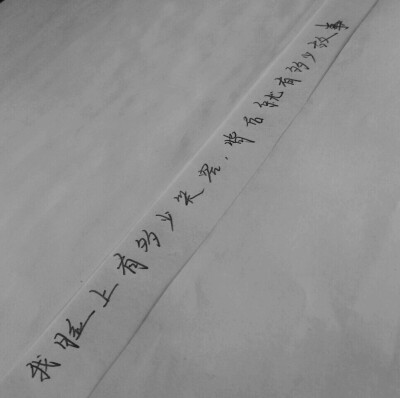 我脸上有多少笑容，背后就有多少故事